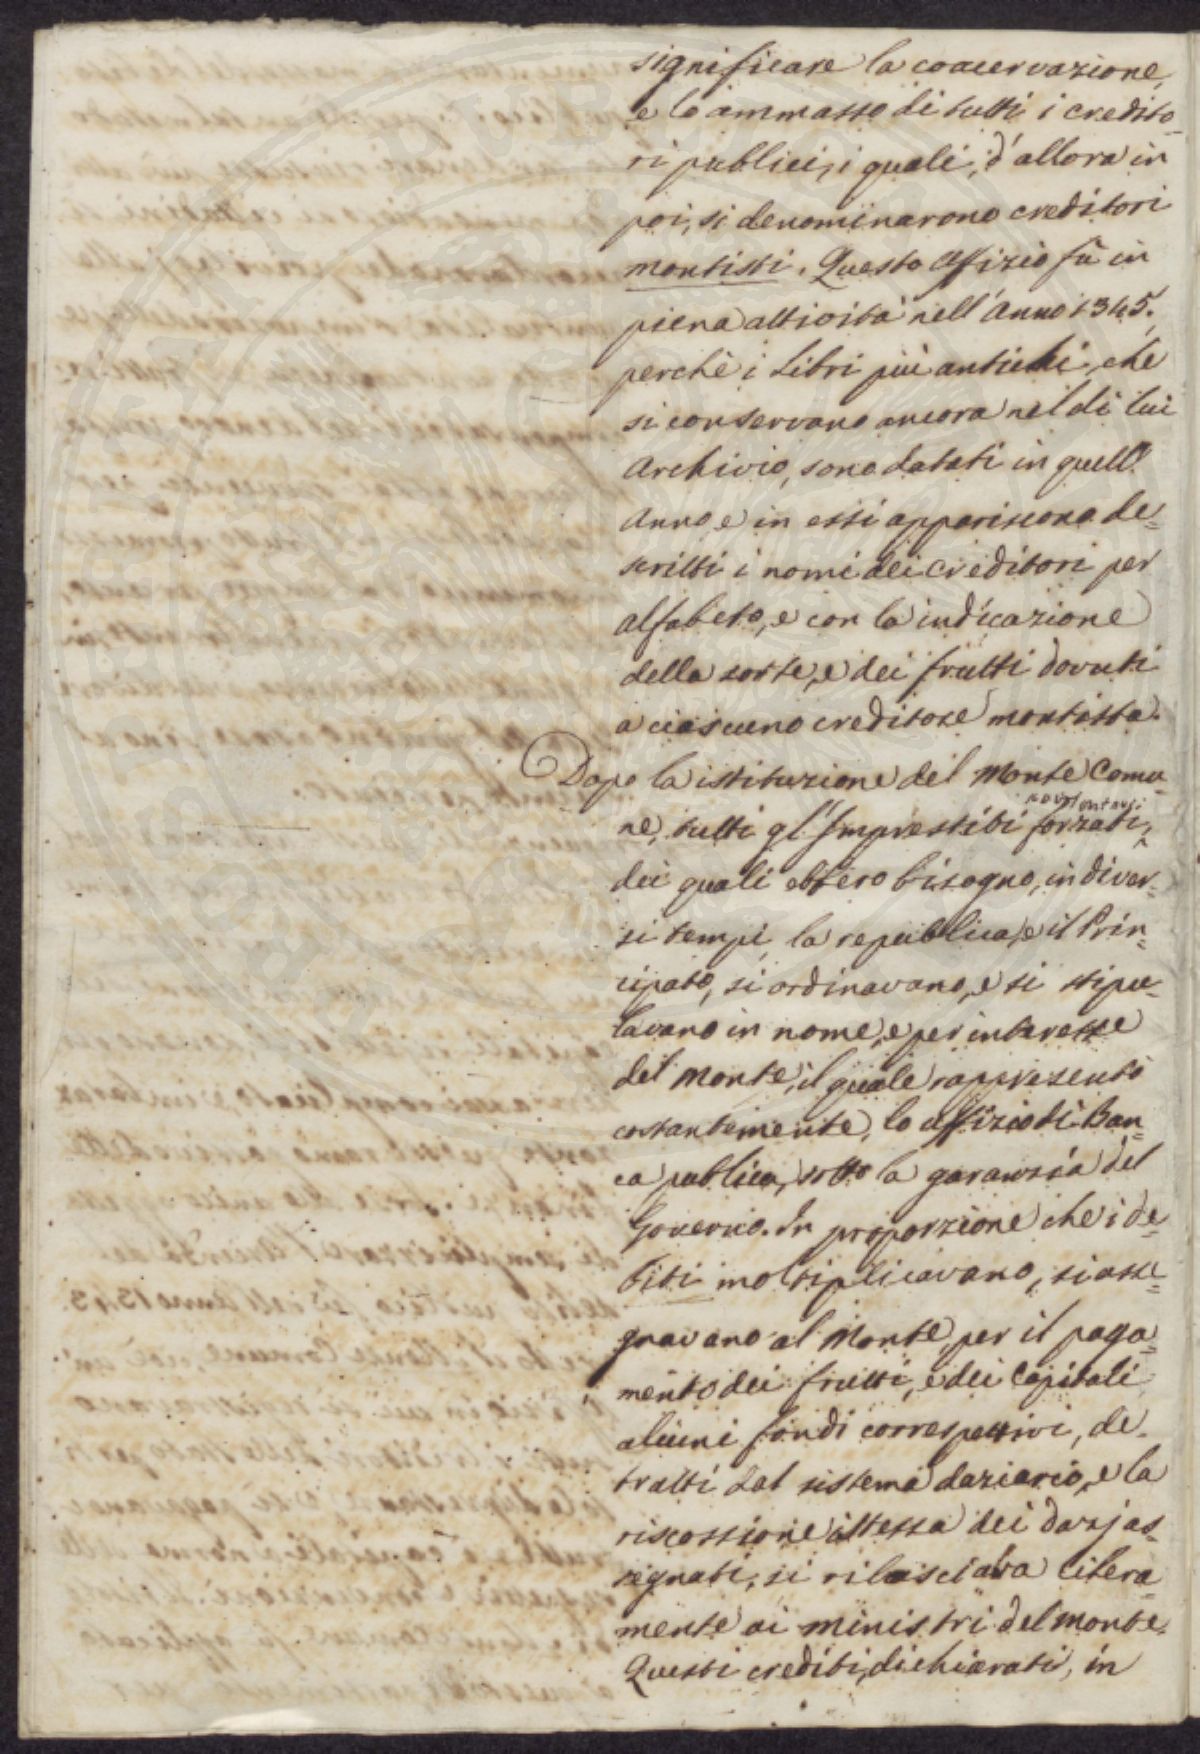 significare la coacervazione,
e lo ammasso di tutti i credito=
ri publici, i quali, d'allora in
poi, si denominarono creditori
montisti. Questo Offizio fù in
piena attività nell'Anno 1345.,
perchè i Libri più antichi, che
si conservano ancora nel di lui
Archivio, sono datati in quell'
Anno e in essi appariscono de=
scritti i nomi dei Creditori per
alfabeto, e con la indicazione
della sorte, e dei frutti dovuti
a ciascuno creditore montista.
Dopo la istituzione del Monte Comu=
ne, tutti gl'Imprestiti forzati, o volontari
dei quali ebbero bisogno, in diver=
si tempi, la republica, e il Prin=
cipato, si ordinavano, e si stipu=
lavano in nome, e per interesse
del Monte, il quale rappresentò
costantemente, lo uffizio di Ban=
ca publica, sotto la garanzia del
Governo. In proporzione che i de=
biti moltiplicavano, si asse=
gnavano al Monte, per il paga=
mento dei frutti, e dei Capitali
alcuni fondi correspettivi, de=
tratti dal sistema daziario, e la
riscossione istessa dei dazj as=
segnati, si rilasciava libera=
mente ai ministri del Monte.
Questi crediti, dichiarati, in